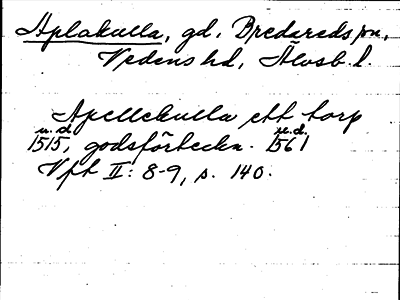 Aplakulla, gd, Bredareds sn,
Vedens hd, Älvsb. l.
Apellekulla ett torp
u.d. u.d.
1515, godsförteckn. 1561
Vft II: 8-9, s. 140.